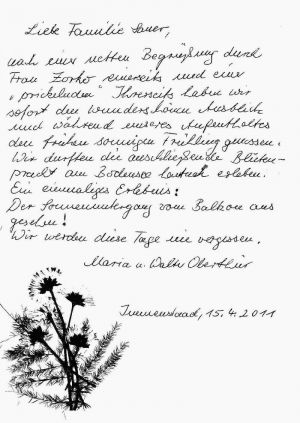 Liebe Familie Sauer,
nach einer netten Begrüßung durch
Frau Zorko einerseits und einer
„prickelnden" Ihrerseits haben wir
sofort den wunderschönen Ausblick
und während unseres Aufenthaltes
den frühen sonnigen Frühling genossen.
Wir durften die anschließende Blüten-
pracht am Bodensee hautnah erleben.
Ein einmaliges Erlebnis:
Der Sonnenuntergang vom Balkon aus
gesehen!
Wir werden diese Tage nie vergessen.
Maria u. Walter
Immenstaad, 15.4.2011